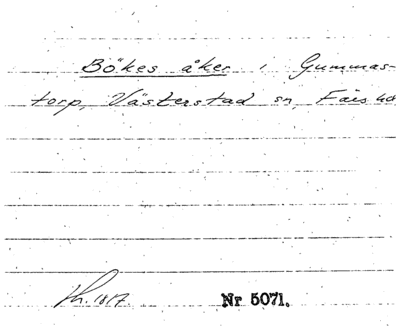 Bökes åker i Gummas-
torp, Västerstad sn, Färs hd
Nr 5071.